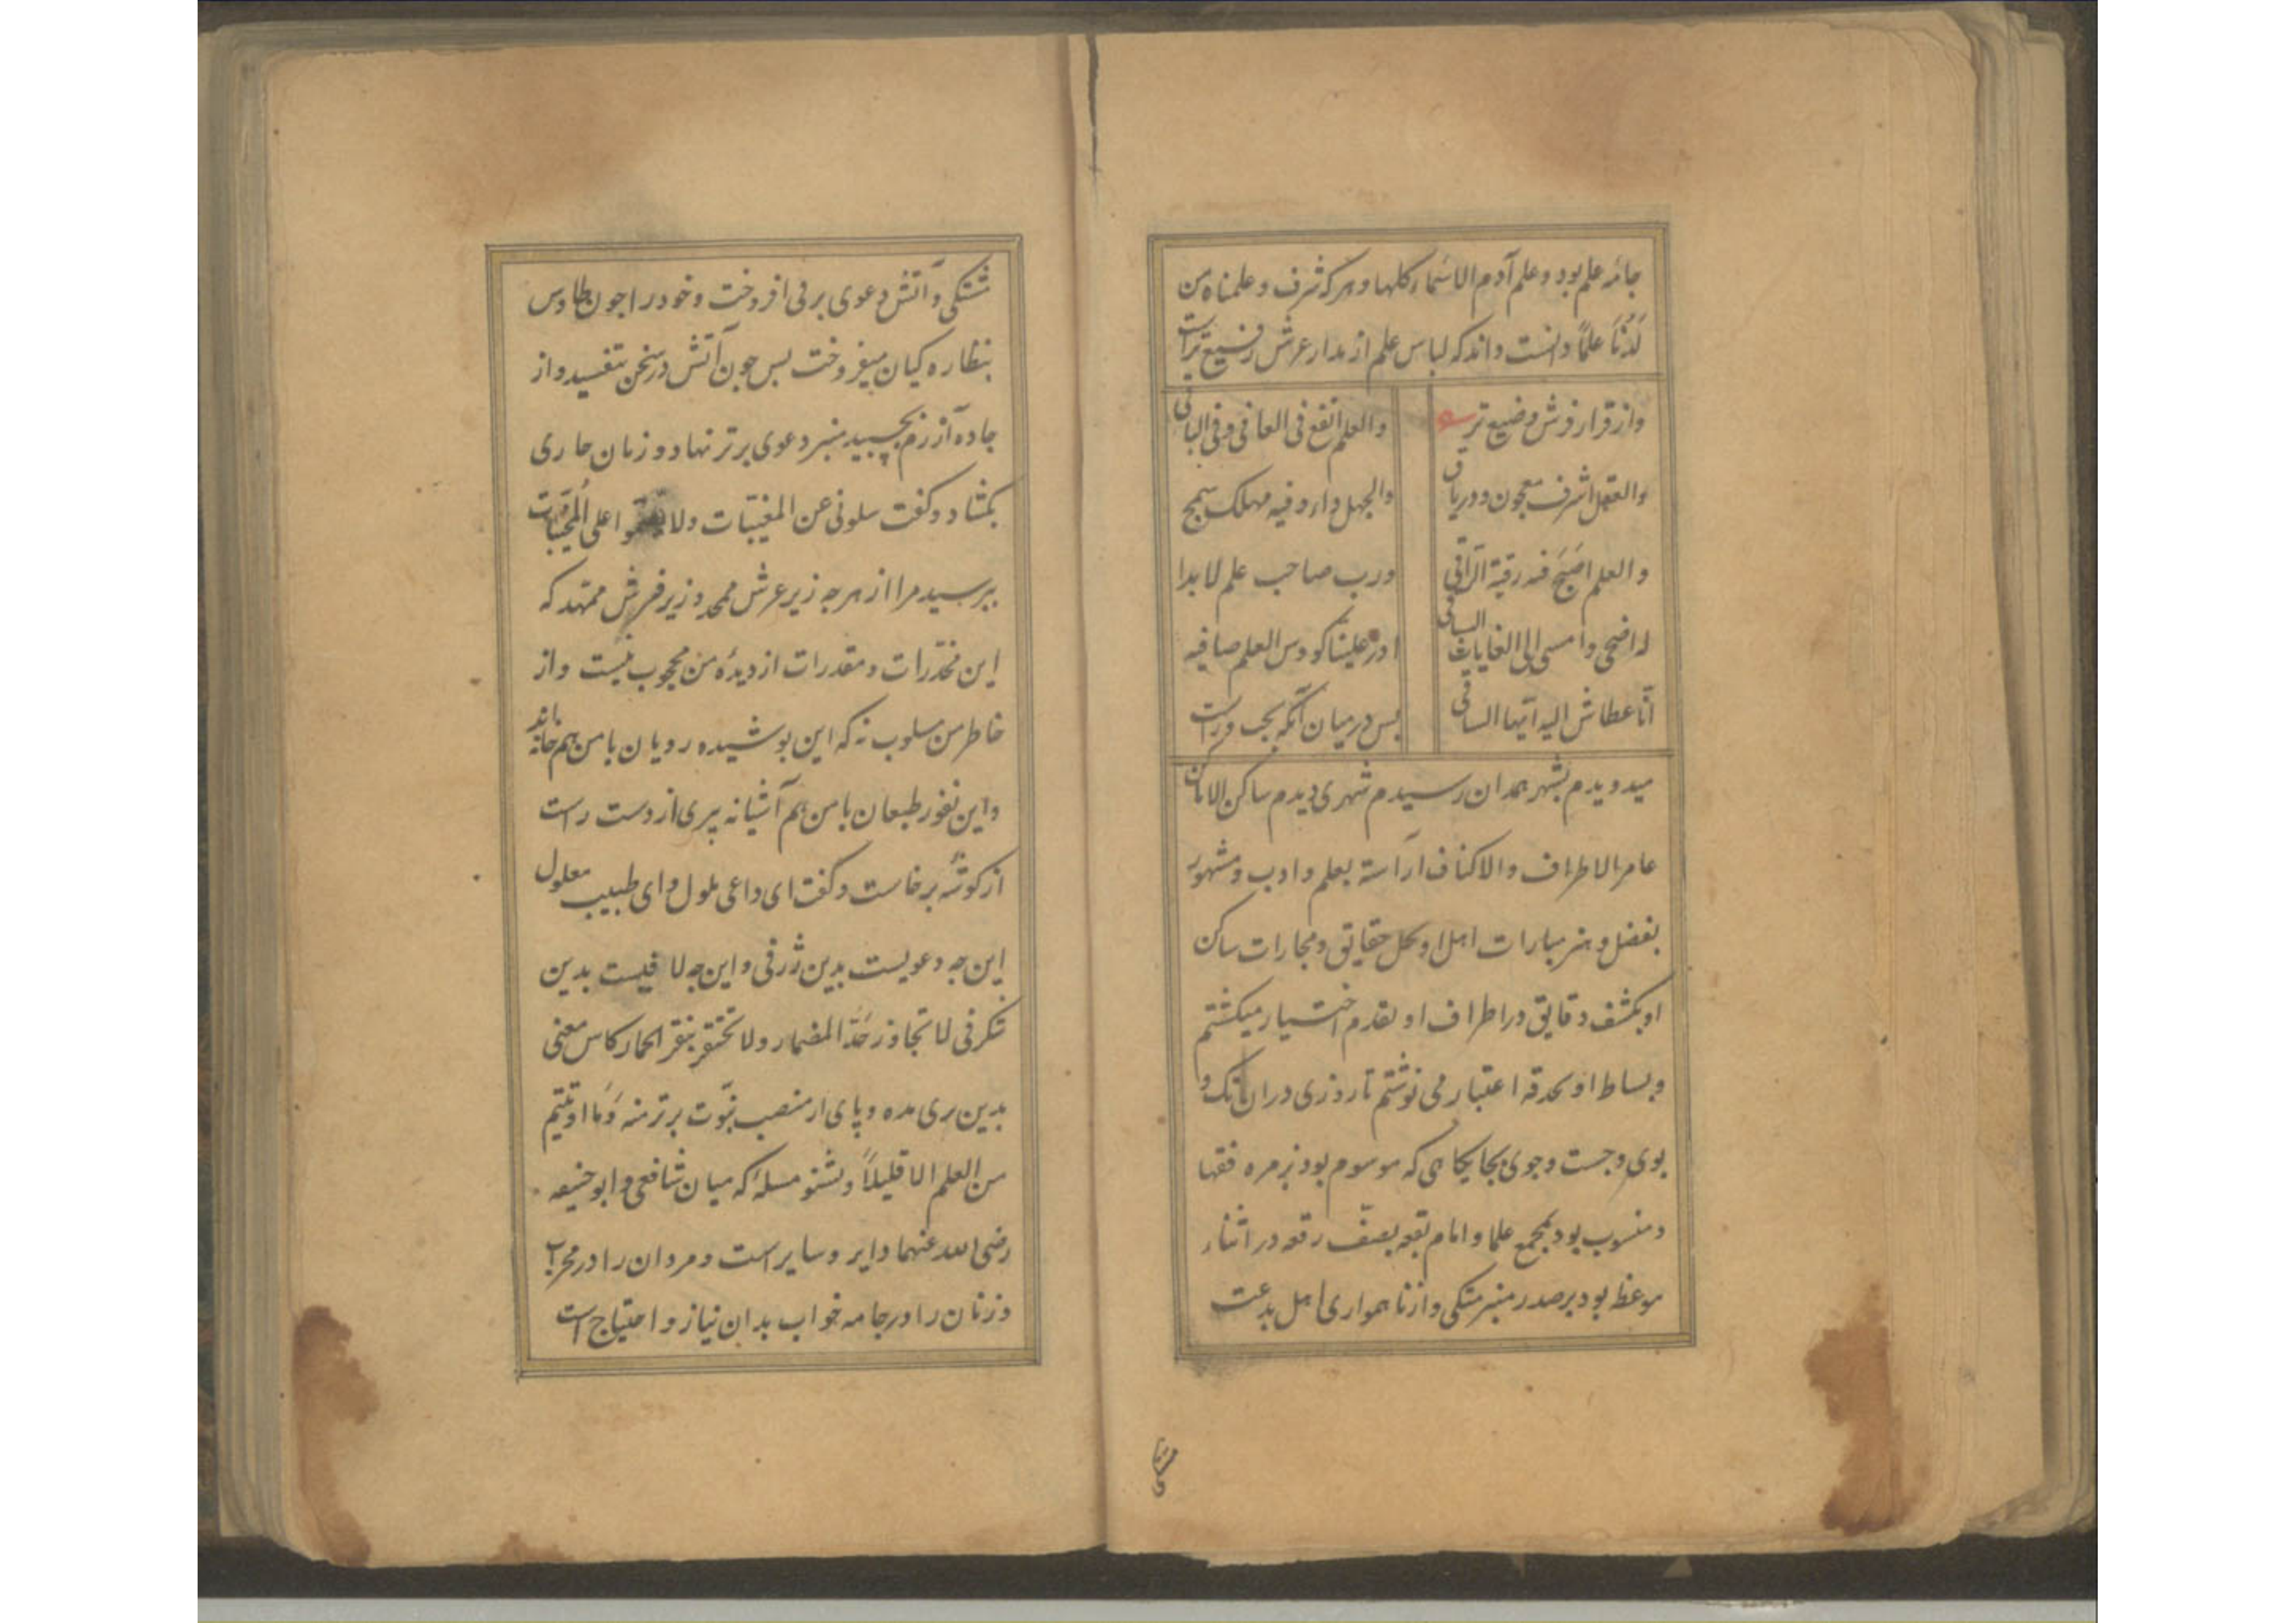 جامهٔ علم بود و علم آدم الاسماء کلها و هر که شرف و علمناه من
لَدُنّا علمًا دانست داند که لباس علم از مدار عرش رفیع تر است
و از قرار فرش وضیع تر
والعلم انفع فی العافی و فی الباقی
والعقل اشرف معجون و دریاق
والجهل داء و فیه مهلک سمج
والعلم اصبح فیه رقیة الراقی
و رب صاحب علم لا بدا
له اضحی و امسی الی الغایات الساقی
ادر علینا کووس العلم صافیه
انا عطاش الیه ایها الساقی
پس در میان آنکه بجب و راست
میدویدم بشهر همدان رسیدم شهری دیدم ساکن الاماکن
عامر الاطراف والاکناف آراسته بعلم و ادب و مشهور
بفضل و هنر مبارات اهل او بحل حقایق و مجارات ساکن
او بکشف دقایق در اطراف او بقدم اختیار میکشتم
و بساط او بحدقه اعتبار می نوشتم تا روزی در ان تک و
پوی و جست و جوی بجایکاهی که موسوم بود بزمره فقها
و منسوب بود بمجمع علما و امام بقعه بصف رقعه در اثناء
موعظ بود بر صدر منبر متکی و از ناهمواری اهل بدعت
متشکی
شتکی و آتش دعوی برمی افروخت و خود را جون طاوس
بنظاره کیان میفروخت بس جون آتش در سخن بتفسید و از
جاده آزرم بجسبید منبر دعوی برتر نهاد و زمان جاری
بکشاد و کفت سلونی عن المغیبات ولا تقفوا علی المجیبات
بپرسید مرا از هر جه زیر عرش ممجد و زیر فرش ممهد که
این مخدرات و مقدرات از دیده من محجوب نیست و از
خاطر من مسلوب نه که این بوشیده رویان با من هم خانه اند
و این نفور طبعان با من هم آشیانه پیری از دست راست
از کوشه برخاست و کفت ای داعی ملول و ای طبیب معلول
این جه دعویست بدین ژرفی و این جه لافیست بدین
شکرفی لا تجاوز حَدّ المضمار ولا تحتقر بنقر الحمار کاس معنی
بدین بری مده و پای از منصب نبوّت برتر منه وَمَا اوتیتم
من العلم الا قلیلاً و بشنو مسلهٔ که میان شافعی و ابو حنیفه
رضی الله عنهما دایر و سایر است و مردان را در محراب
و زنان را در جامه خواب بدان نیاز و احتیاج است